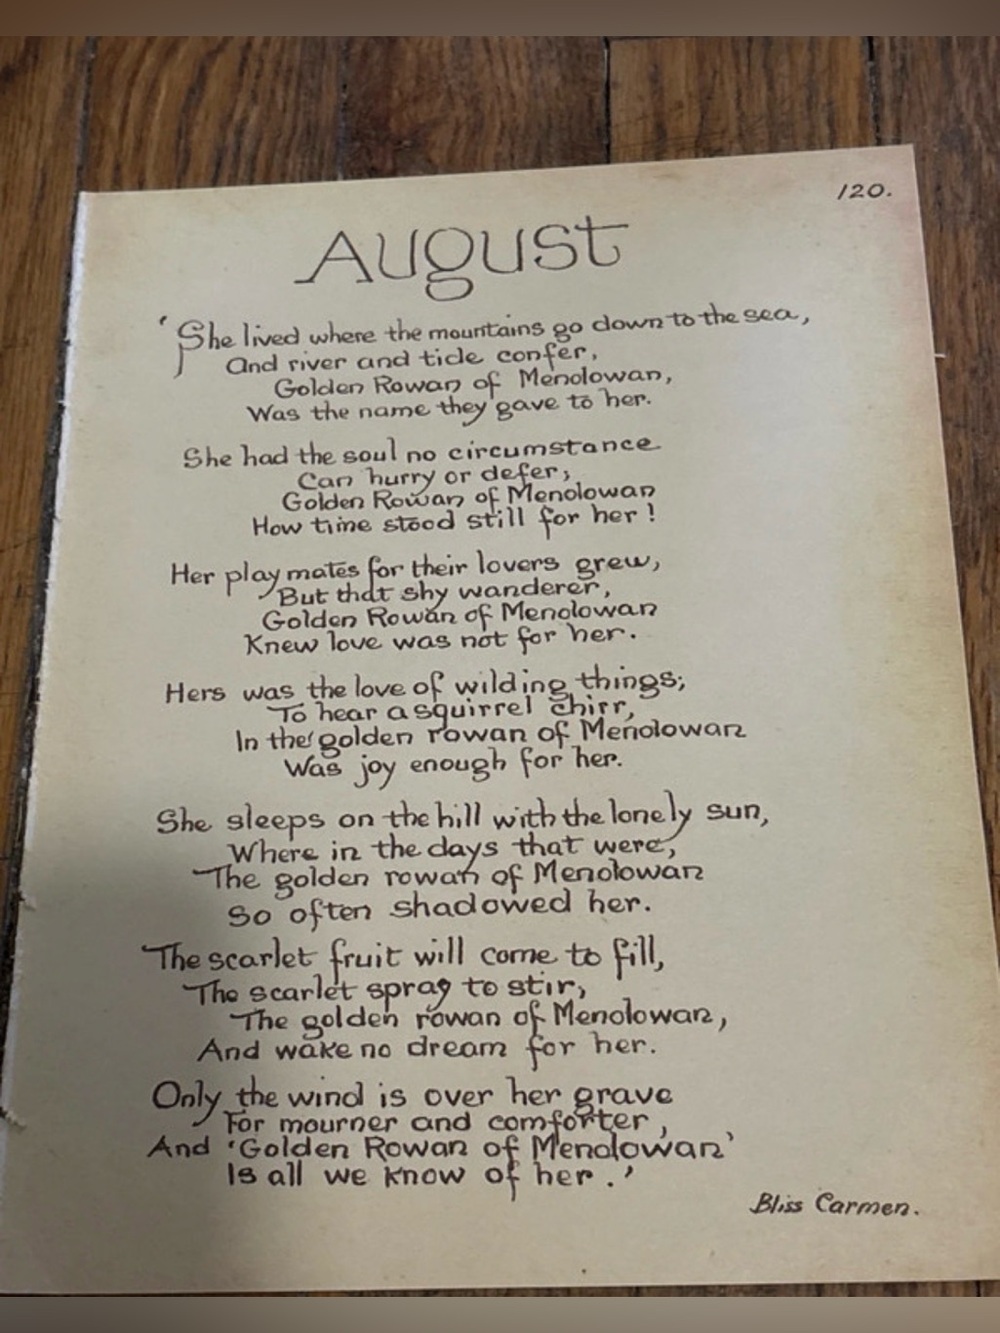 120.
August
'She lived where the mountains go down to the sea,
And river and tide confer,
Golden Rowan of Menolowan,
Was the name they gave to her.
She had the soul no circumstance
Can hurry or defer;
Golden Rowan of Menolowan
How time stood still for her!
Her playmates for their lovers grew,
But that shy wanderer,
Golden Rowan of Menolowan
Knew love was not for her.
Hers was the love of wilding things;
To hear a squirrel chirr,
In the golden rowan of Menolowan
Was joy enough for her.
She sleeps on the hill with the lonely sun,
Where in the days that were,
The golden rowan of Menolowan
So often shadowed her.
The scarlet fruit will come to fill,
The scarlet spray to stir,
The golden rowan of Menolowan,
And wake no dream for her.
Only the wind is over her grave
For mourner and comforter,
And 'Golden Rowan of Menolowan'
Is all we know of her.'
Bliss Carmen.